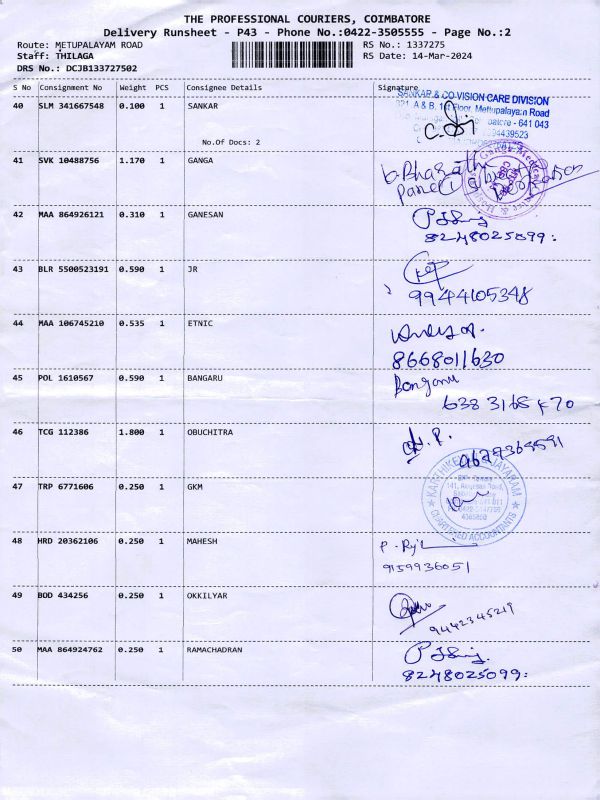 THE PROFESSIONAL COURIERS, COIMBATORE
Delivery Runsheet - P43 - Phone No.:0422-3505555 - Page No.:2
Route: METUPALAYAM ROAD RS No.: 1337275
Staff: THILAGA RS Date: 14-Mar-2024
DRS No.: DCJB133727502
S No Consignment No Weight PCS Consignee Details Signature
SANKAR & CO-VISION CARE DIVISION
40 SLM 341667548 0.100 1 SANKAR
321, A & B, 1st Floor, Mettupalayam Road
641 043
No.Of Docs: 2
41 SVK 10488756 1.170 1 GANGA
42 MAA 864926121 0.310 1 GANESAN
8248025099.
43 BLR 5500523191 0.590 1 JR
9944105348
44 MAA 106745210 0.535 1 ETNIC
8668011630
45 POL 1610567 0.590 1 BANGARU
638 3168 470
46 TCG 112386 1.800 1 OBUCHITRA
KARTHIKEYAN & JAYARAM
CHARTERED ACCOUNTANTS
47 TRP 6771606 0.250 1 GKM
48 HRD 20362106 0.250 1 MAHESH
9159936051
49 BOD 434256 0.250 1 OKKILYAR
9442345219
50 MAA 864924762 0.250 1 RAMACHADRAN
8248025099.